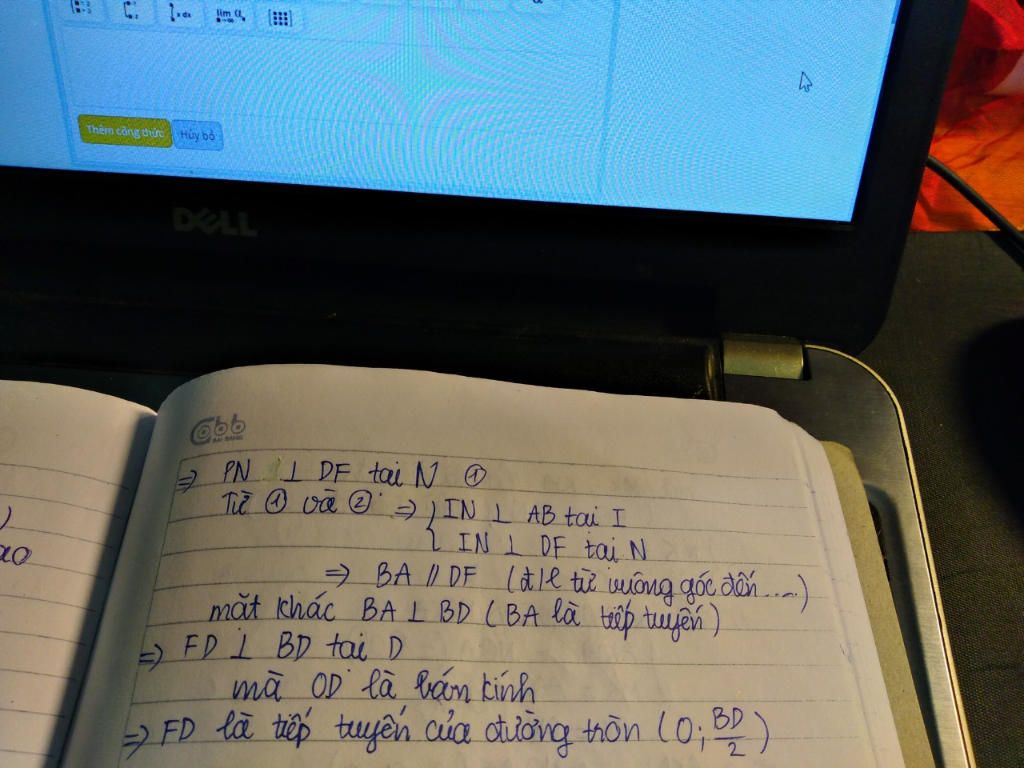 lim
Thêm công thức Hủy bỏ
DELL
abb
BAI BANG
⇒ PN ⊥ DF tai N ①
Từ ① và ② ⇒ { IN ⊥ AB tai I
IN ⊥ DF tai N
⇒ BA // DF (đ/l từ vuông góc đến ....)
mặt khác BA ⊥ BD (BA là tiếp tuyến)
⇒ FD ⊥ BD tai D
mà OD là bán kính
⇒ FD là tiếp tuyến của đường tròn (O; BD/2)
)
ao